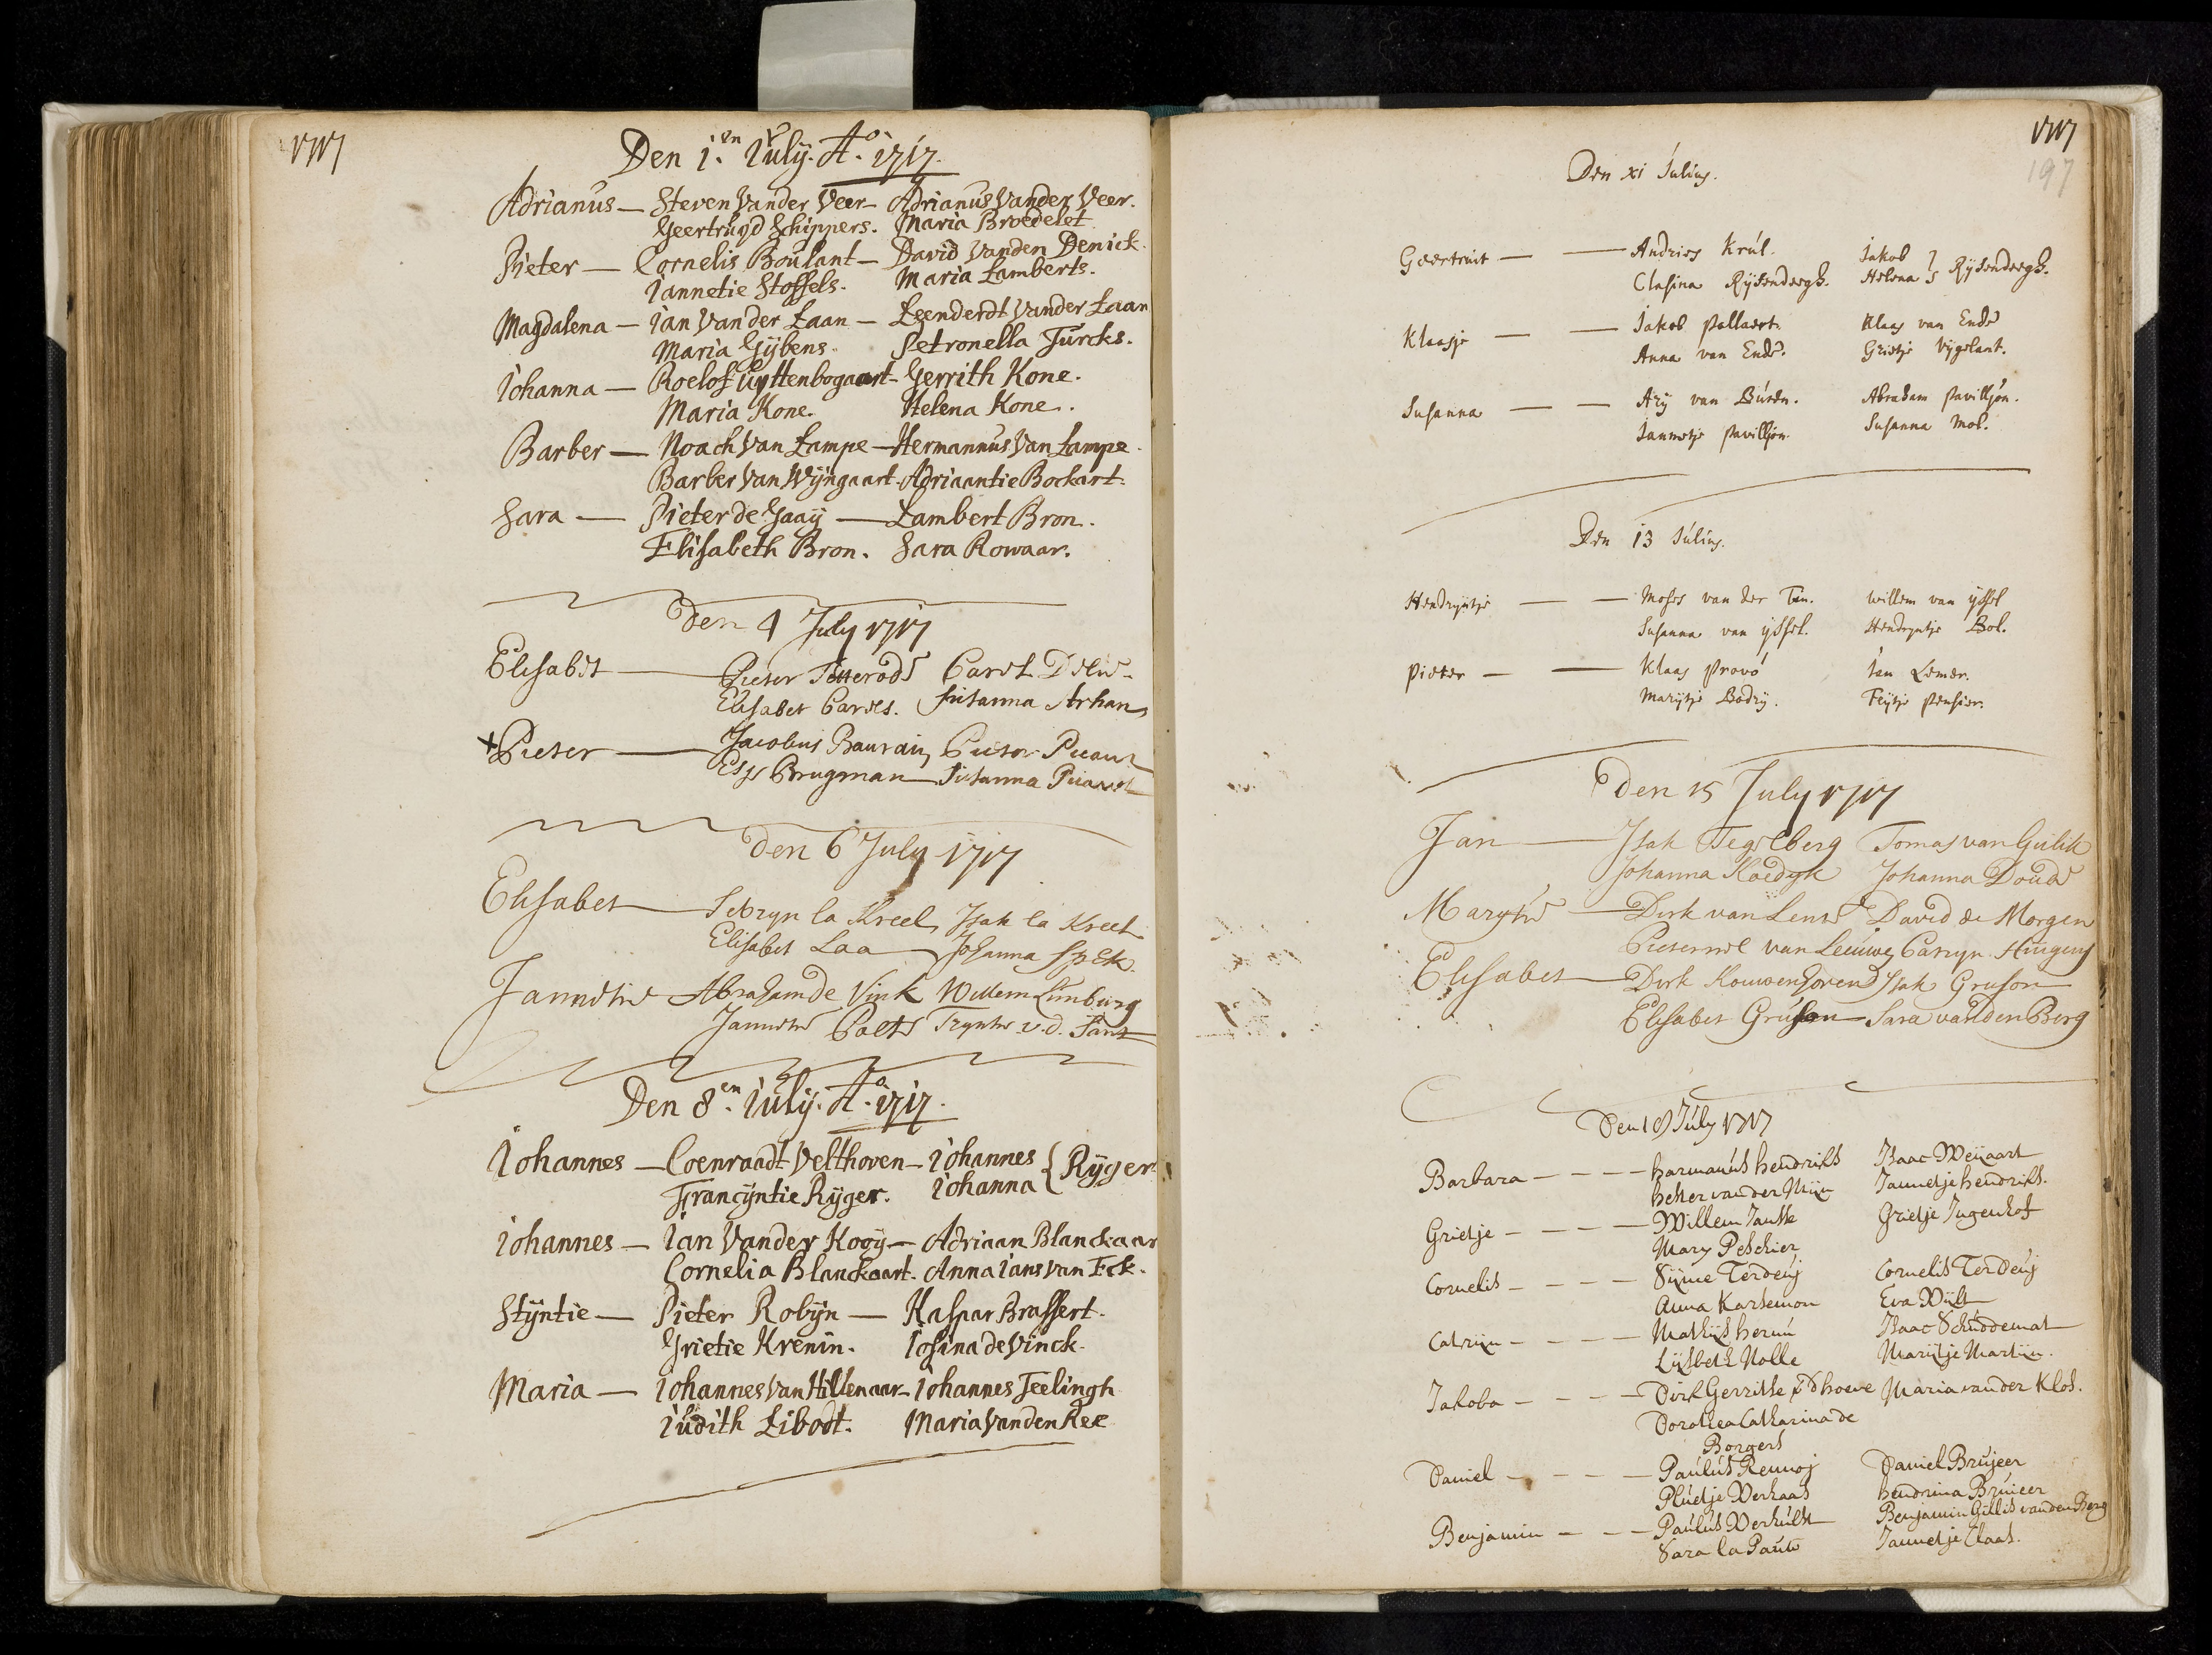 1717
Den 1.en Iuly. Ao. 1717.
Adrianus — Steven Vander Veer — Adrianus Vander Veer.
Geertruyd Schippers. Maria Broedelet
Pieter — Cornelis Boulant — David Vanden Denick.
Iannetie Stoffels. Maria Lamberts.
Magdalena — Ian Vander Laan — Leenderdt Vander Laan
Maria Gijbens. Petronella Turcks.
Iohanna — Roelof Uyttenbogaart — Gerrith Kone.
Maria Kone. Helena Kone.
Barber — Noach Van Lampe — Hermannus Van Lampe.
Barber Van Wijngaart. Adriaantie Bockart.
Sara — Pieter de Gaaij — Lambert Bron.
Elisabeth Bron. Sara Rowaar.
Den 4 July 1717
Elisabet — Pieter Tetterode Carel
Elisabet Carels. Susanna Arhan
+ Pieter — Jacobus Baurain, Pieter
Brugman — Susanna
Den 6 July 1717
Elisabet — la Kreel, Isak la Kreel
Elisabet Laa — Johanna Spek.
Jannetie Abraham de Vink Willem Limburg
Jannetie Palts Tryntie v.d. Sant
Den 8.en Iuly. Ao. 1717.
Iohannes — Coenraadt Velthoven — Iohannes { Ryger.
Francijntie Ryger. Iohanna
Iohannes — Ian Vander Kooy — Adriaan Blanckaar
Cornelia Blanckaart. Anna Ians van Eck.
Stijntie — Pieter Robijn — Kaspar Brassert.
Grietie Krenin. Iosina de Vinck.
Maria — Iohannes Van Hillenaar — Iohannes Teelingh
Iudith Libodt. Maria Vanden Kee
1717
197
Den xi Julius.
Geertruit — — Andries Krul. Jakob } Rijsendergh.
Clasina Rijsendergh. Helena
Klaasje — — Jakob Pallaert. Klaas van Ende
Anna van Ende. Grietje Vijgelant.
Susanna — — Ary van Buren. Abraham Pavilljon.
Jannetje Pavilljon. Susanna Mol.
Den 13 Julius.
Hendryntje — — Moses van der Tin. Willem van ijssel
Susanna van ijssel. Hendryntje Bol.
Pieter — — Klaas Provó Jan Lemer.
Marijtje Bodry. Fijtje Pensier.
Den 15 July 1717
Jan — Isak Tegelberg Tomas van Gulik
Johanna Kaedyk Johanna Doude
Marytie — Dirk van Lente David de Morgen
Pieternel van Leeuwe, Caryn Huigens
Elisabet — Dirk Kouwenhoven Isak Gruson
Elisabet Gruson — Sara van den Berg
Den 18 July 1717
Barbara — — — harmanus hendriks Isaac Weyaart
hester van der Mijn Jannetje hendriks.
Grietje — — — Willem Jansse Grietje Jugenhof
Mary Peschier
Cornelis — — — Sijme Terdeng Cornelis Terdeng
Anna Karsemon Eva Wijlt
Catrijn — — — Mathijs Isaac Schuddemat
Lijsbeth Nolle Marijtje Martijn.
Jakoba — — — Dirk Gerritse Maria vander Klos.
Dorothea Catharina de
Borgers
Daniel — — — Paulus Rennoj Daniel Brujeer
Pluetje Verhaas hendrina Bruieer
Benjamin — — — Paulus Verhulst Benjamin Gillis vanden Berg
Sara la Pauw Jannetje Claas.